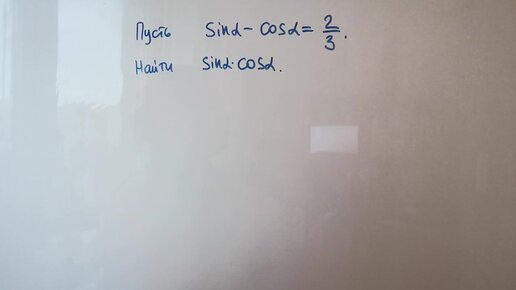 Пусть sinα - cosα = 2/3.
Найти sinα·cosα.